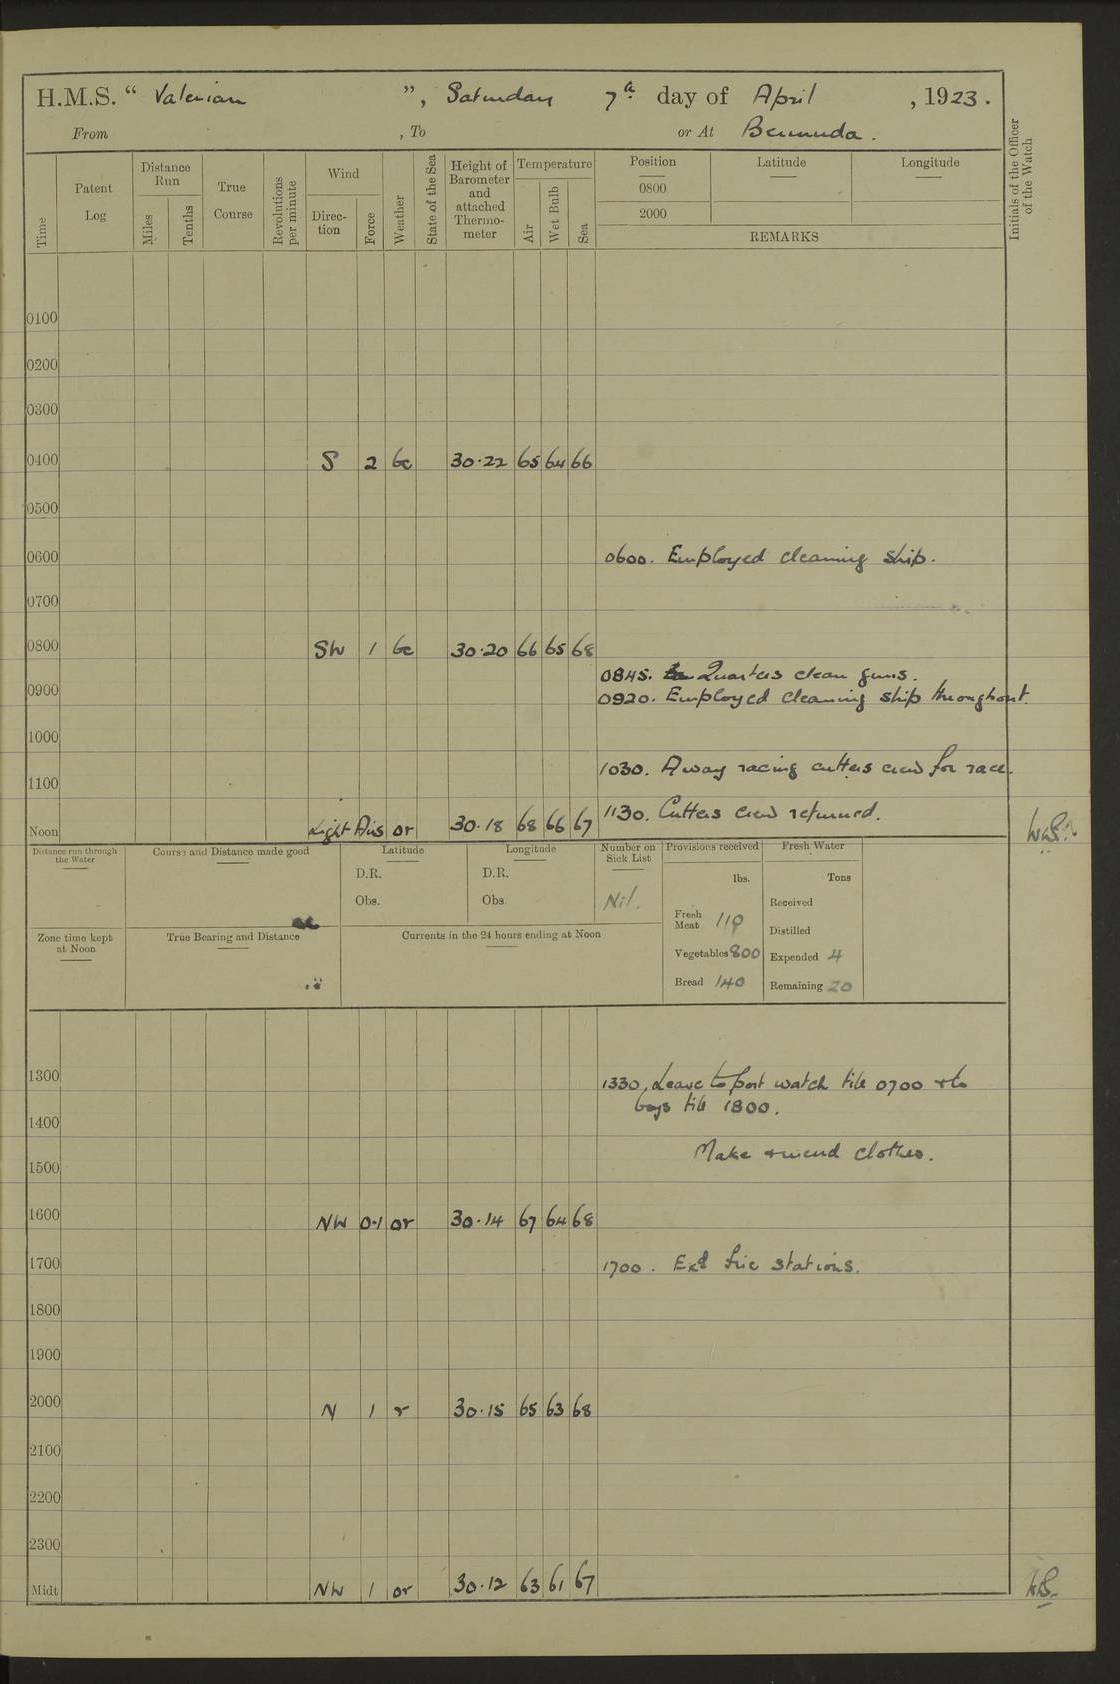 H.M.S. “ Valerian ”, Saturday 7th day of April , 1923.
From , To or At Bermuda.
Time
Patent Log
Distance Run
Miles
Tenths
True Course
Revolutions per minute
Wind
Direc-tion
Force
Weather
State of the Sea
Height of Barometer and attached Thermo-meter
Temperature
Air
Wet Bulb
Sea
Position
Latitude
Longitude
0800
2000
REMARKS
Initials of the Officer of the Watch
0100
0200
0300
0400 S 2 bc 30.22 65 64 66
0500
0600 0600. Employed cleaning ship.
0700
0800 SW 1 bc 30.20 66 65 68
0845. Quarters clean guns.
0900 0920. Employed cleaning ship throughout.
1000
1030. Away racing cutters crew for race.
1100
1130. Cutters crew returned.
Noon Light Airs or 30.18 68 66 67
Distance run through the Water
Course and Distance made good
Latitude
D.R.
Obs.
Longitude
D.R.
Obs
Number on Sick List
Nil.
Provisions received
lbs.
Fresh Meat 119
Vegetables 800
Bread 140
Fresh Water
Tons
Received
Distilled
Expended 4
Remaining 20
Zone time kept at Noon
True Bearing and Distance
Currents in the 24 hours ending at Noon
1300 1330. Leave to port watch till 0700 & to
boys till 1800.
1400
Make & mend clothes.
1500
1600 NW 0.1 or 30.14 67 64 68
1700 1700. Exd fire stations.
1800
1900
2000 N 1 r 30.15 65 63 68
2100
2200
2300
Midt NW 1 or 30.12 63 61 67